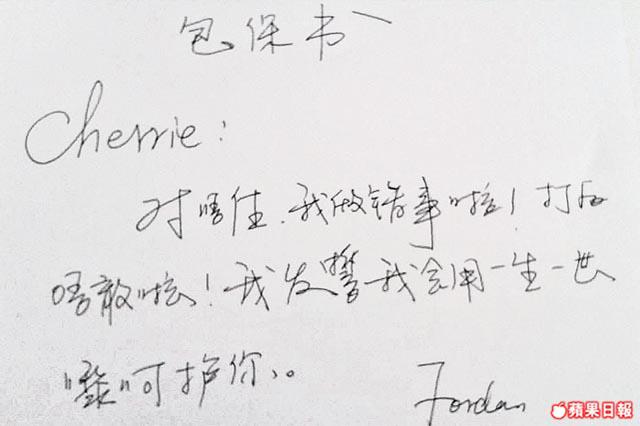 包保书
Cherrie:
对唔住.我做错事啦!打后
唔敢啦!我发誓我会用一生一世
嚟呵护你..
Jordan
蘋果日報